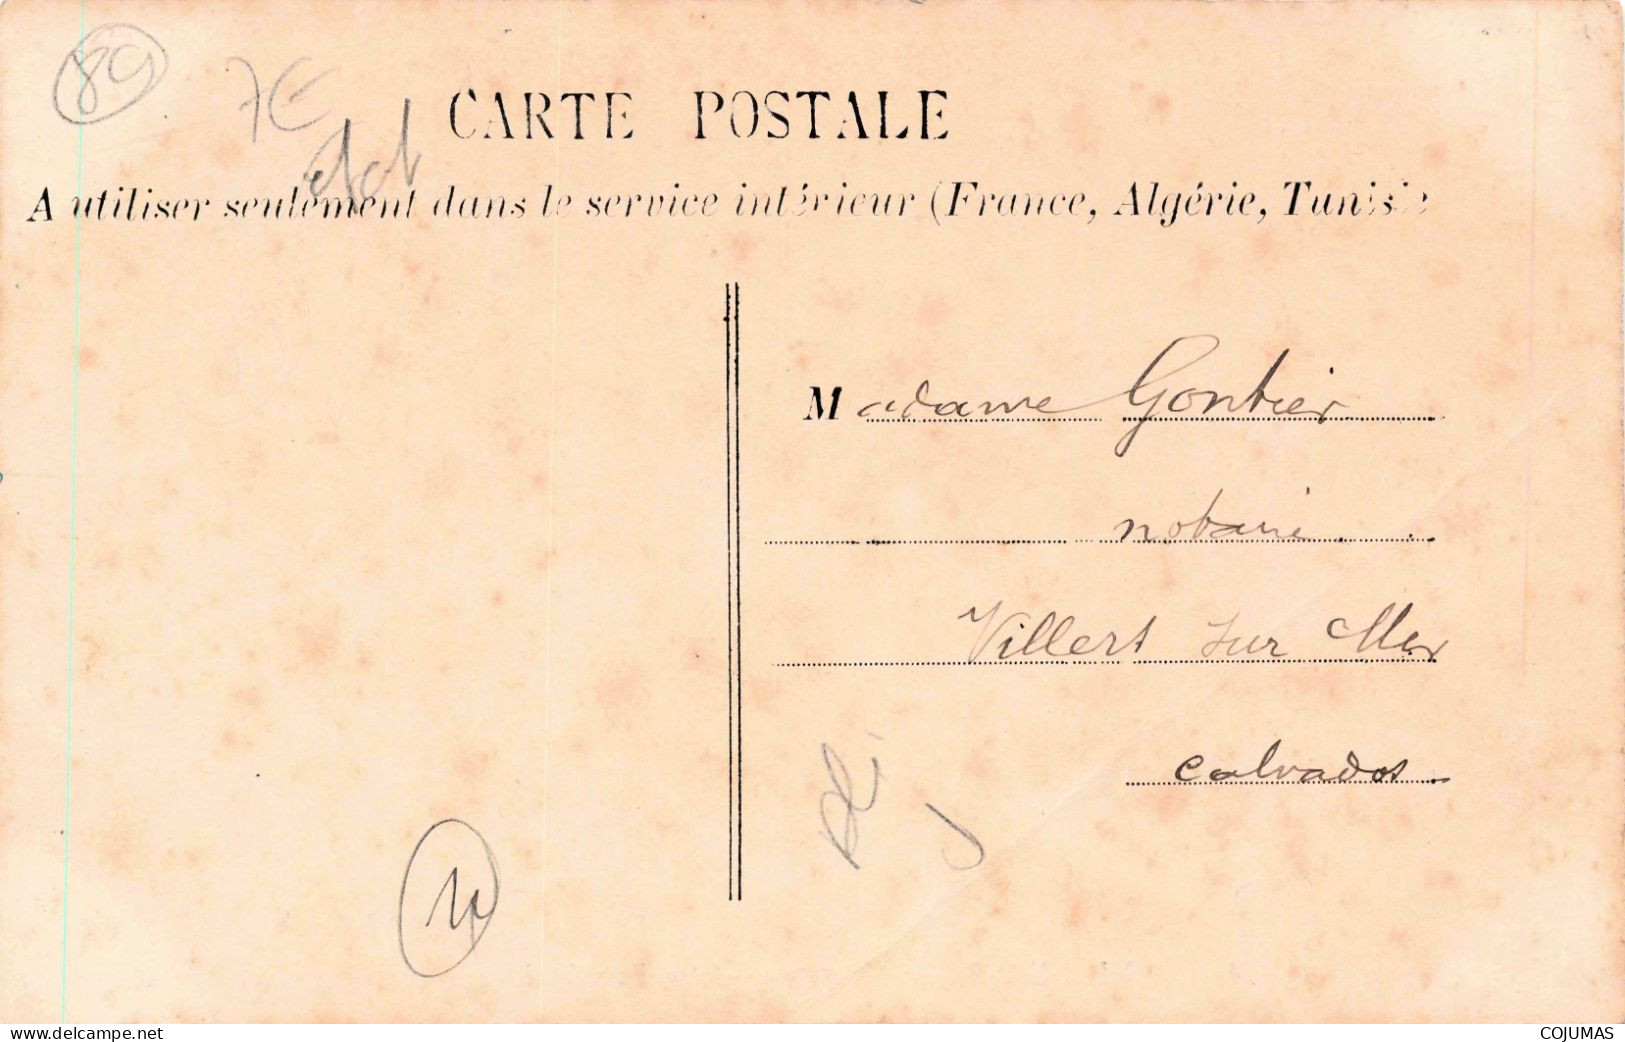 89
7E
CARTE POSTALE
A utiliser seulement dans le service intérieur (France, Algérie, Tunisie
Madame Gontier
notaire
Villers sur Mer
Calvados
www.delcampe.net
COJUMAS